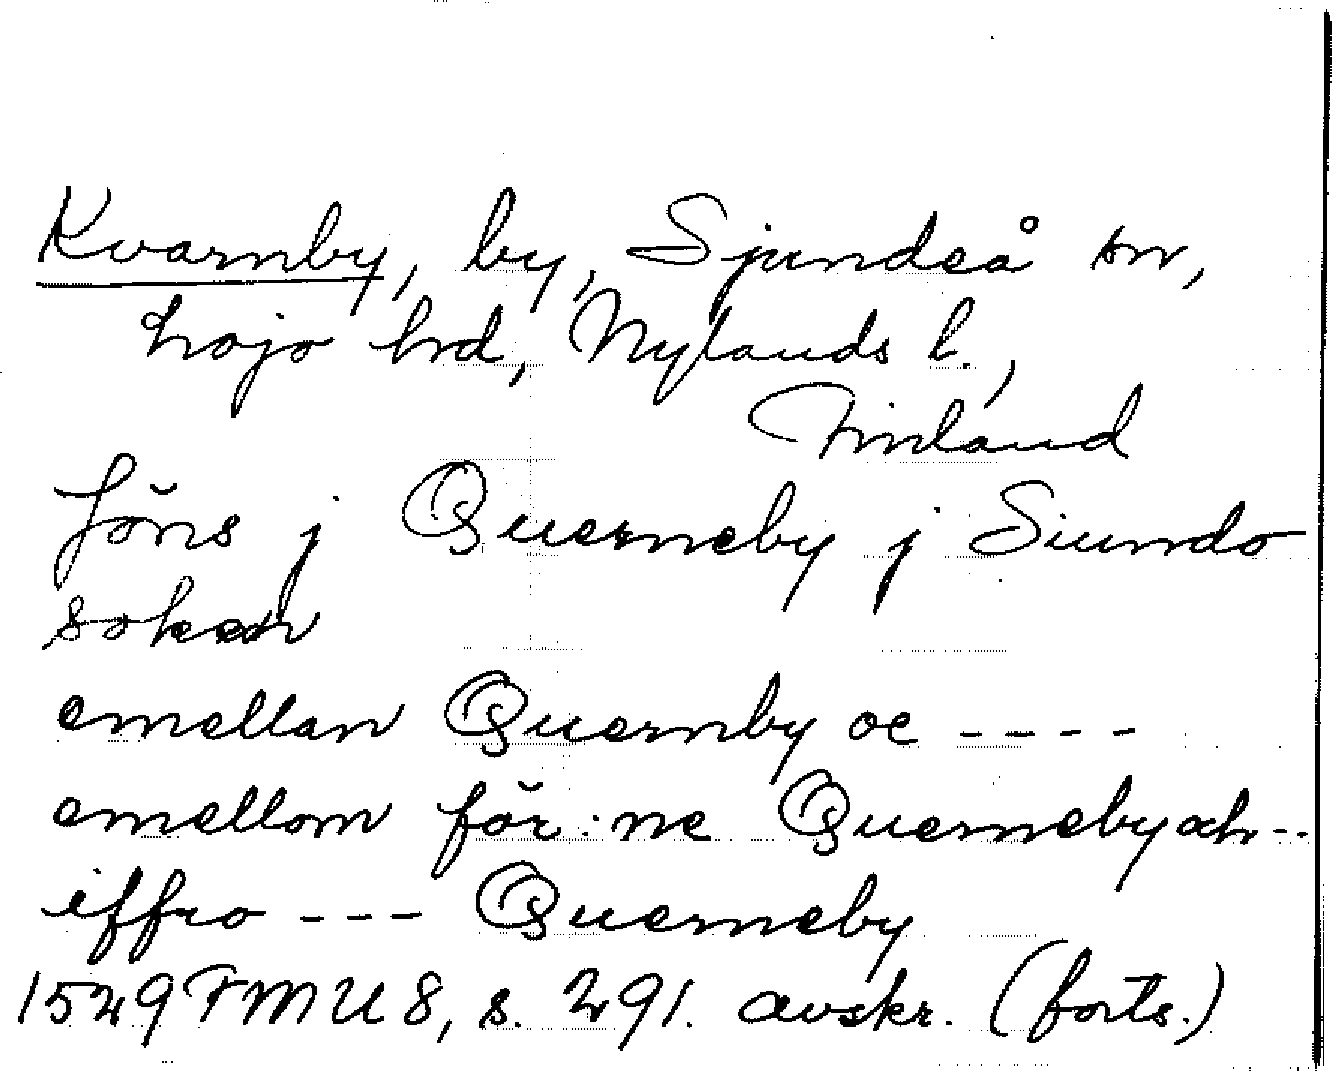 Kvarnby, by, Sjundeå sn,
Lojo hrd, Nylands l.,
Finland
Jöns j Querneby j Siundo
soken
emellan Quernby oc ----
emellom för:ne Querneby och --
iffro --- Querneby
1529 FMU 8, s. 291. avskr. (forts.)